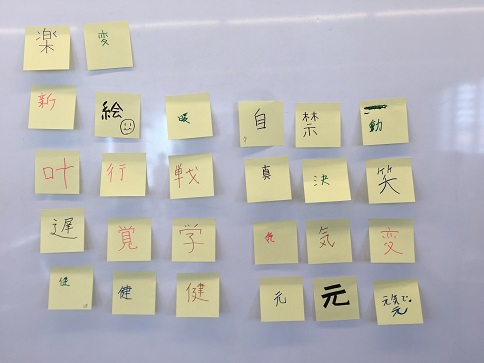 楽 変
新 絵 暖 自 禁 動
叶 行 戦 真 決 笑
遅 覚 学 気 変
健 健 健 元 元 元気で。元